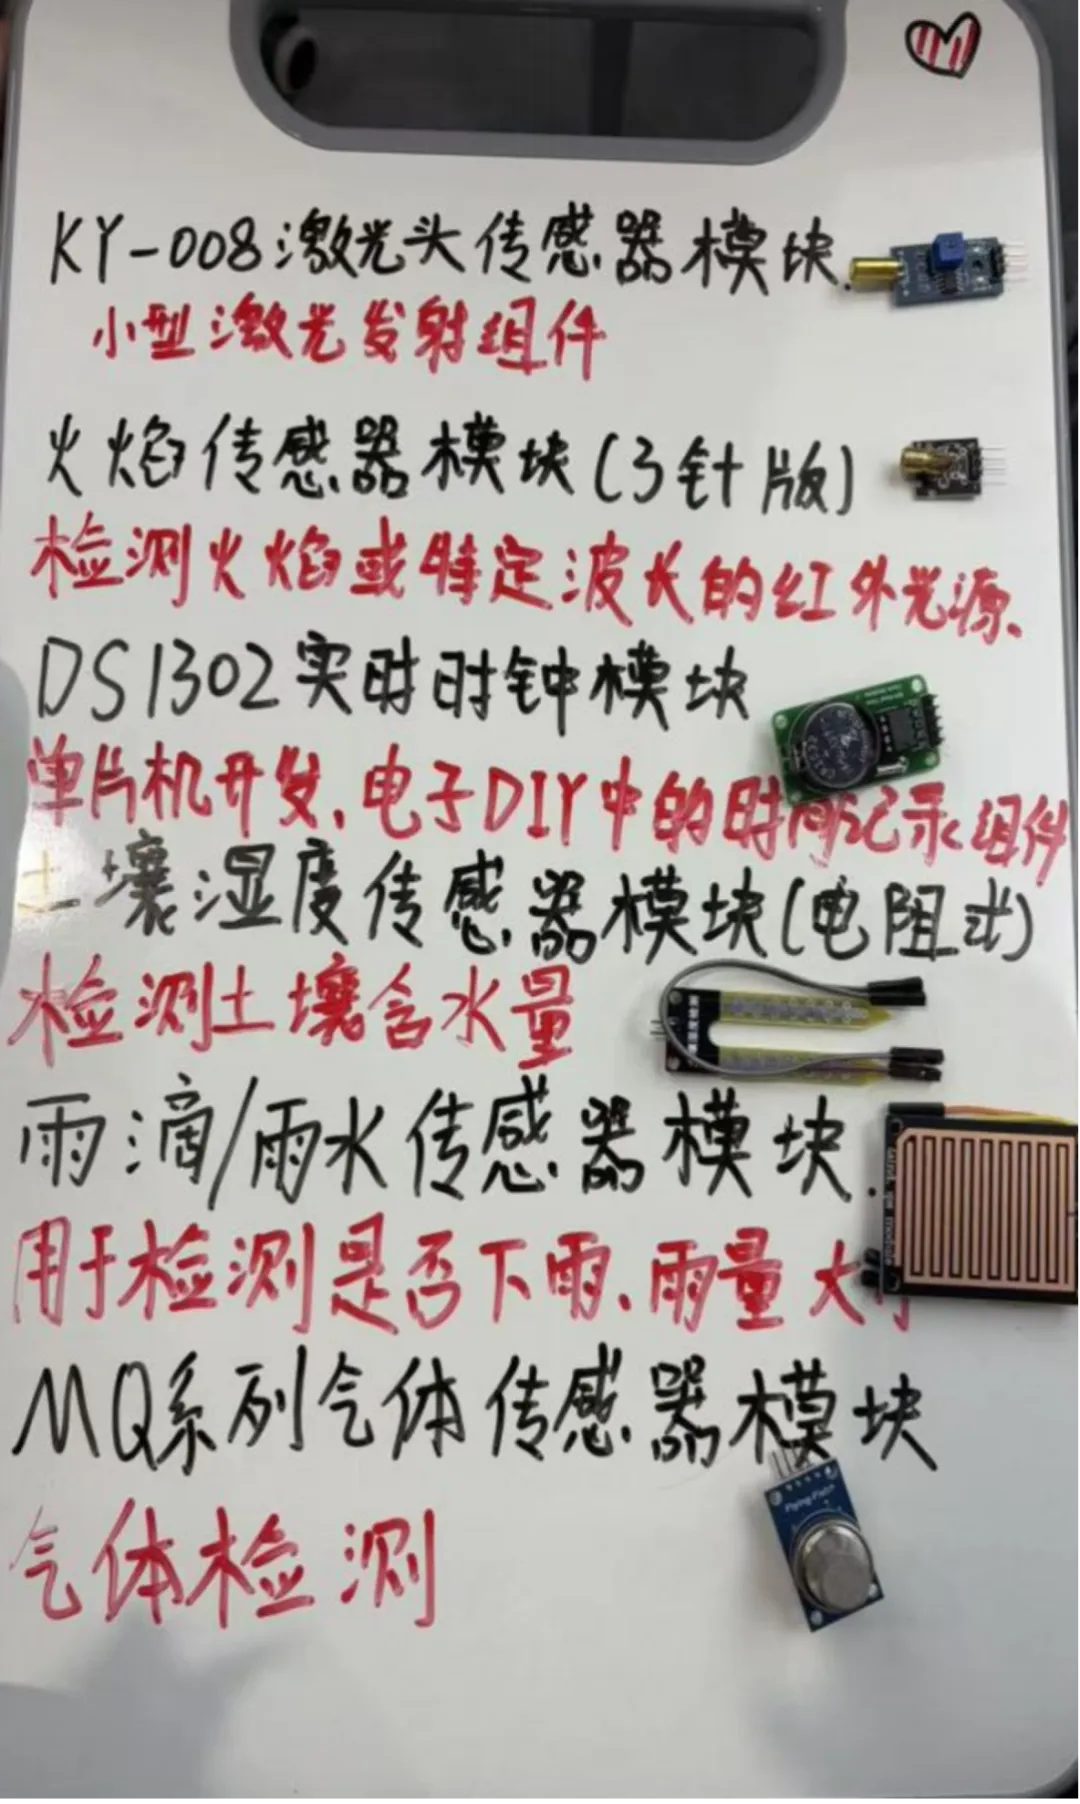 KY-008激光头传感器模块.
小型激光发射组件
火焰传感器模块(3针版)
检测火焰或特定波长的红外光源.
DS1302实时时钟模块
单片机开发.电子DIY中的时间记录组件
土壤湿度传感器模块(电阻式)
检测土壤含水量
雨滴/雨水传感器模块.
用于检测是否下雨.雨量大
MQ系列气体传感器模块
Flying Fish
气体检测